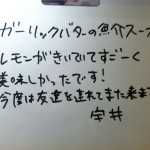 ガーリックバターの魚介スープ
レモンがきいていてすごーく
美味しかったです!
今度は友達を連れてまた来ます
宇井